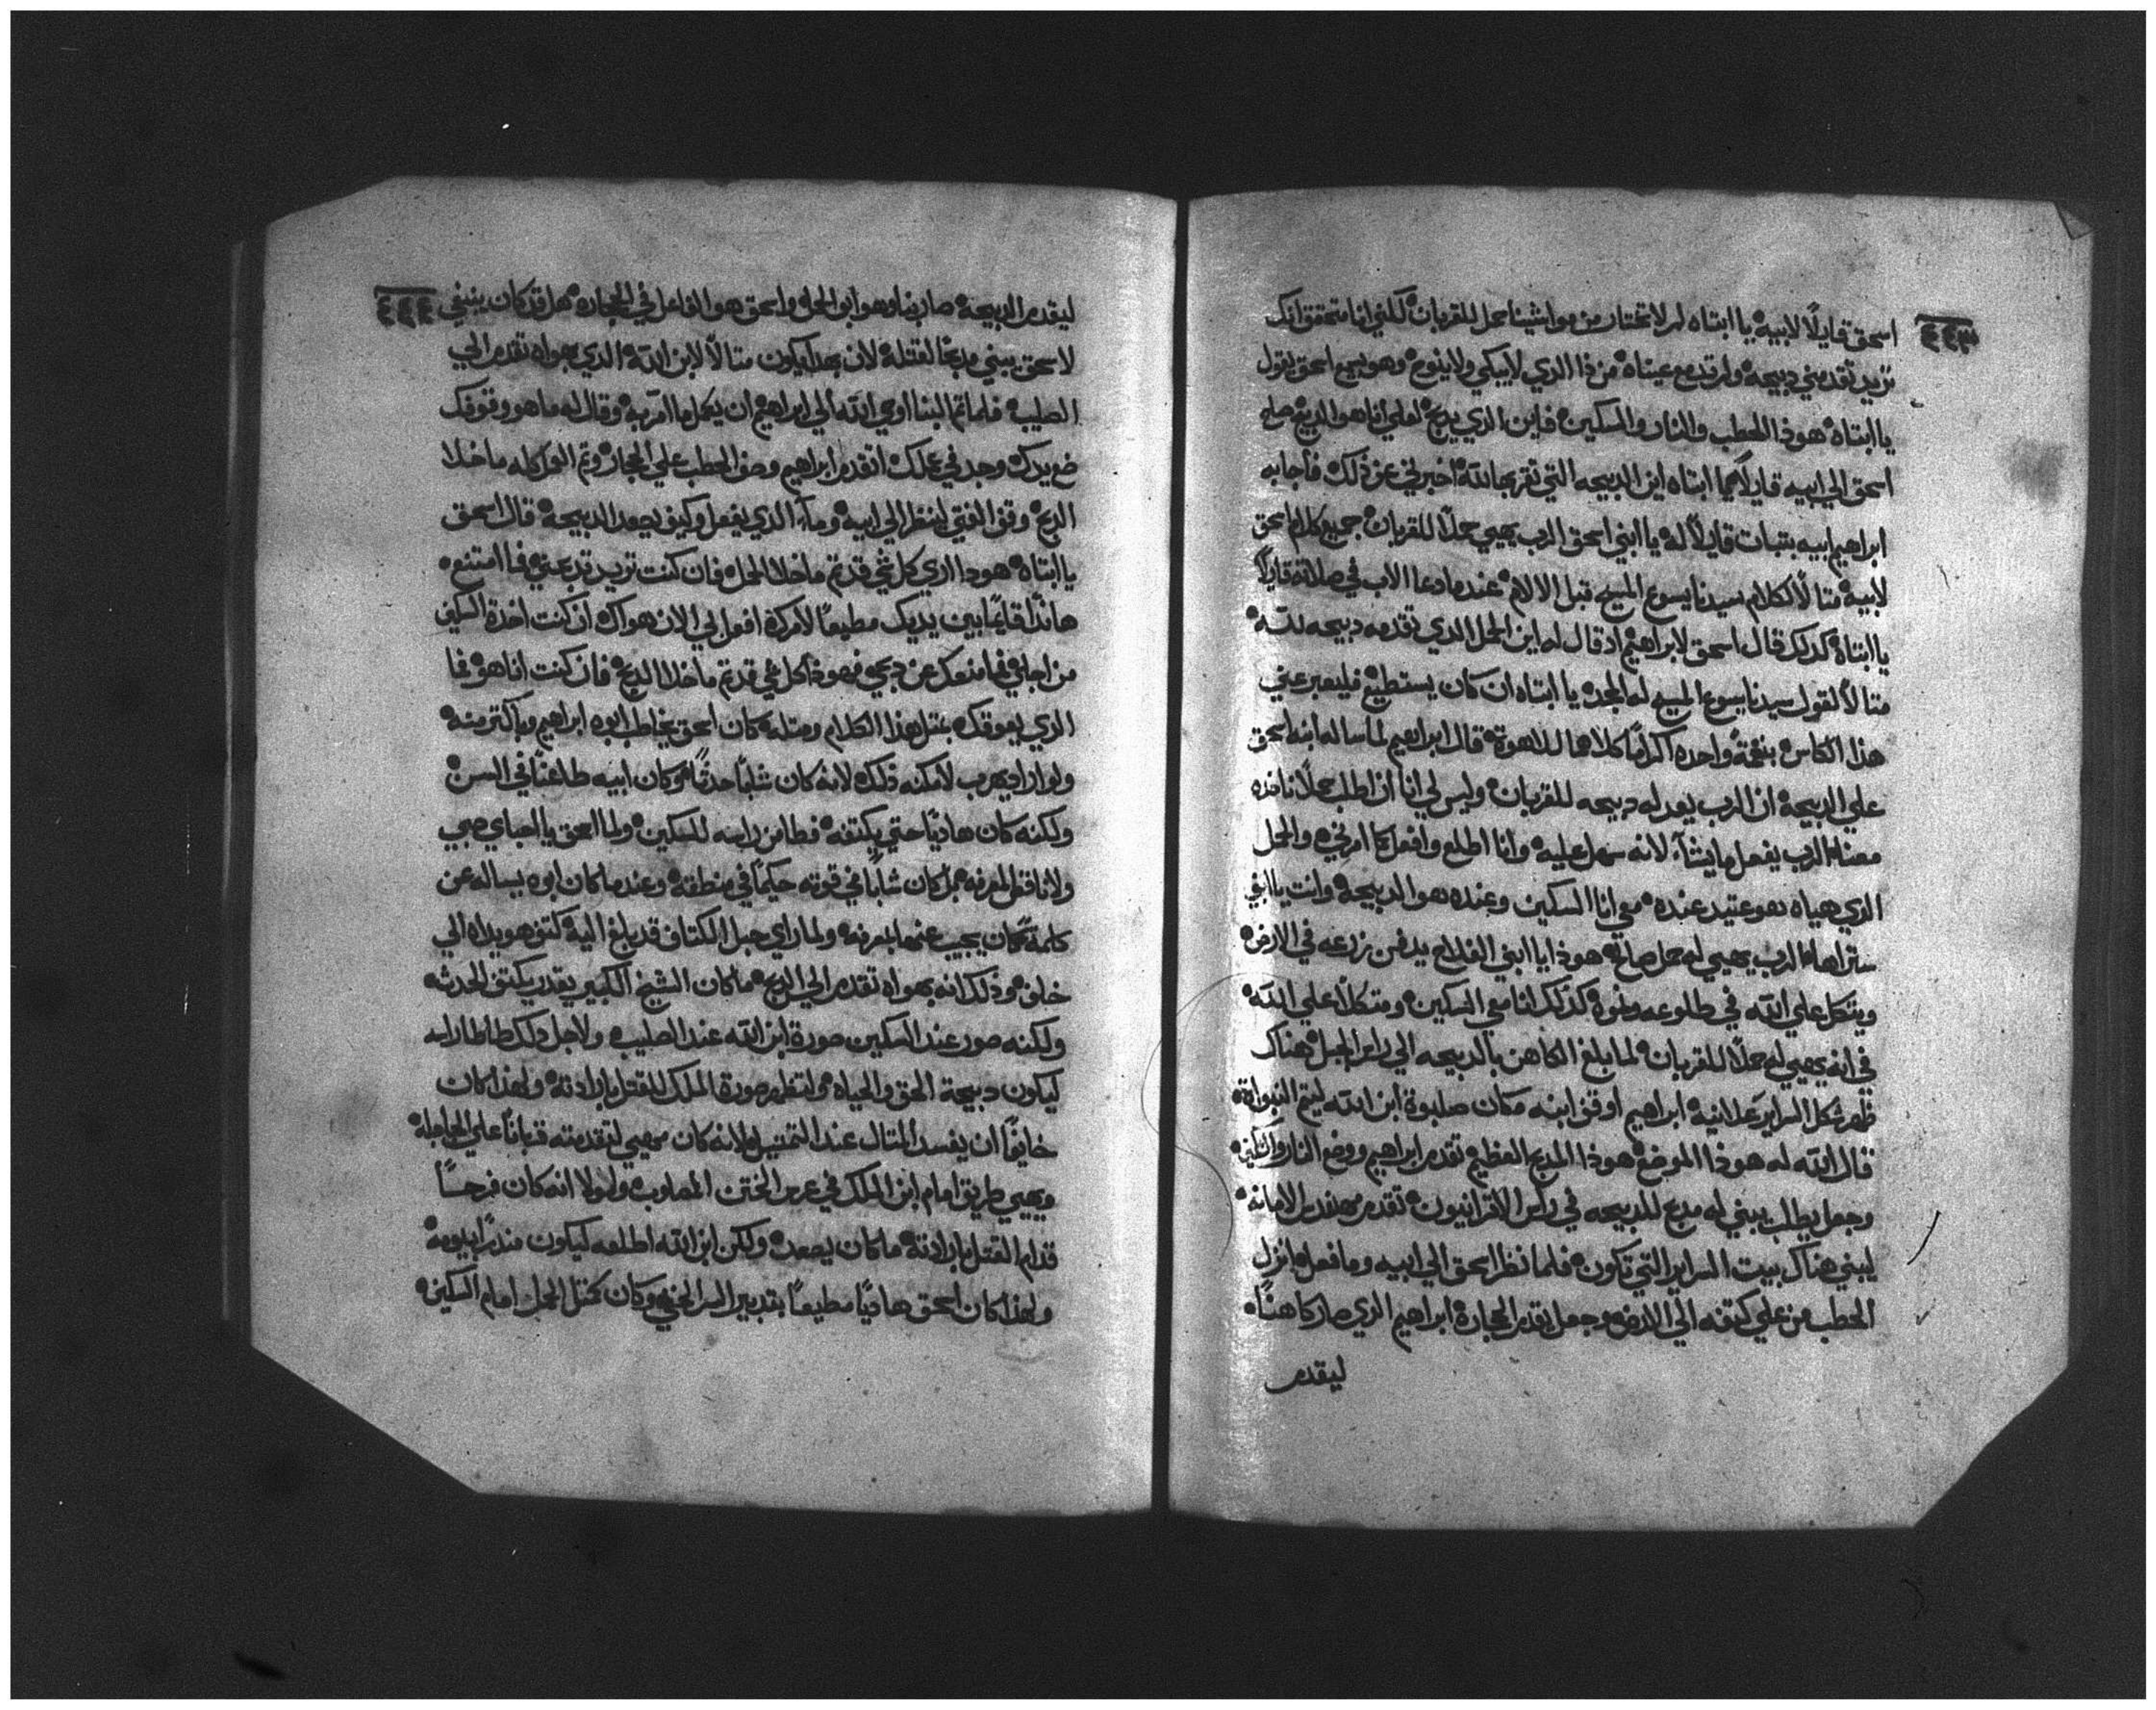 ٤٤٣
اسحق قايلاً لابيه يا ابتاه لم لا تختار من مواشينا حمل للقربان لكنني انا متحقق انك
تريد تقدمني دبيحه ولم تدمع عيناه من ذا الذي لا يبكي ولا ينوح وهو يسمع اسحق يقول
يا ابتاه هوذا الحطب والنار والسكين فاين الذي يدبح لعلي انا هو الدبيح صلي
اسحق الي ابيه قايلاً يا ابتاه اين الدبيحه التي تقربها لله اخبرني عن ذلك فاجابه
ابراهيم ابيه بتبات قايلاً له يا ابني اسحق الرب يهيي حملاً للقربان جميع كلام اسحق
لابيه متالاً لكلام سيدنا يسوع المسيح قبل الالام عندما دعا الاب في صلاته قايلاً
يا ابتاه كدلك قال اسحق لابراهيم اد قال له اين الحمل الدي تقدمه دبيحه لله
متالاً لقول سيدنا يسوع المسيح له المجد يا ابتاه ان كان يستطيع فليعبر عني
هذا الكاس بنغمة واحده اكرزا كلاهما للاهوة قال ابراهيم لما ساله ابنه اسحق
علي الدبيحة ان الرب يعد له دبيحه للقربان وليس لي انا ان اطلب حملاً ناخده
معنا الرب يفعل ما يشآء لانه سهل عليه وانا اطلع وافعل كما امرني والحمل
الذي هياه هو عتيد عنده معي انا السكين وعنده هو الدبيحة وانت يا ابني
ستراها الرب يهيي له حمل صالح هوذا يا ابني الفلاح يدفن زرعه في الارض
ويتكل علي الله في طلوعه ونموه كذلك انا معي السكين ومتكلاً علي الله
في انه يهيي له حملاً للقربان لما بلغ الكاهن بالدبيحه الي راس الجبل هناك
ظهر شكل السراير علانية ابراهيم اوقف ابنه مكان صلبوة ابن الله ليتم النبواة
قال الله له هوذا الموضع هوذا المدبح العظيم تقدم ابراهيم ووضع النار والسكين
وجعل يطلب يبني له مدبح للدبيحه في راس الاقرانيون تقدم مهندس الامانه
ليبني هناك بيت السراير التي تكون فلما نظر اسحق الي ابيه وما فعله انزل
الحطب من علي كتفه الي الارض وجعل يقدم الحجارة ابراهيم الذي صار كاهناً
ليقدم
٤٤٤
ليقدم الدبيحة صار بنا وهو ابو الحمل واسحق هو الفاعل في الحجاره هل قد كان ينبغي
لاسحق يبني مدبحاً لقتله لان بهذا يكون متالاً لابن الله الدي بهواه تقدم الي
الصليب فلما تم البنا اوي الله الي ابراهيم ان يكمل ما امر به وقال له ما هو وقوفك
ضع يدك وجد في عملك اتقدم ابراهيم وصف الحطب علي الحجار وتم العمل كله ما خلا
الدبح وقف الفتي لينظر الي ابيه وما الذي يفعل وكيف يصعد الدبيحة قال اسحق
يا ابتاه هودا اري كل شي قد تم ما خلا الحمل فان كنت تريد تدبحني فما امتنع
هاندا قايماً بين يديك مطيعاً لامرك افعل لي الان هواك ان كنت اخدة السكين
من اجلي فما منعك عن دبحي فهوذا كل شي قد تم ما خلا الدبح فان كنت انا هو فما
الذي يعوقك بمتل هذا الكلام ومتله كان اسحق يخاطب ابوه ابراهيم وباكتر منه
ولو اراد يهرب لامكنه ذلك لانه كان شاباً حدثاً وكان ابيه طاعناً في السن
ولكنه كان هادياً حتي يكتفه فطامن راسه للسكين ولما اسحق يا احباي صبي
ولا ناقص المعرفه بل كان شاباً في قوته حكيماً في منطقه وعندما كان ابوه يساله عن
كلمة كان يجيب عنها بمعرفه ولما راي حبل الكتاف قد بلغ اليه كتف هو يداه الي
خلف وذلك انه بهواه تقدم الي الدبح ما كان الشيخ الكبير يقدر يكتف الحدث
ولكنه صور عند السكين صورة ابن الله عند الصليب ولاجل دلك طاطا راسه
ليكون دبيحة الحق والحياه ولتظهر صورة الملك للقتل بارادته ولهذا كان
خايفاً ان يفسد المتال عند التمتيل لانه كان يهيي لتقدمته قرباناً علي الجلجلة
ويهيي طريق امام ابن الملك في عرس الختن المصلوب ولولا انه كان فرحاً
قدام القتل بارادته ما كان يصعد ولكن ابن الله اطلعه ليكون مندراً بيومه
ولهذا كان اسحق هادياً مطيعاً بتدبير السر الخفي وكان كمتل الحمل امام السكين